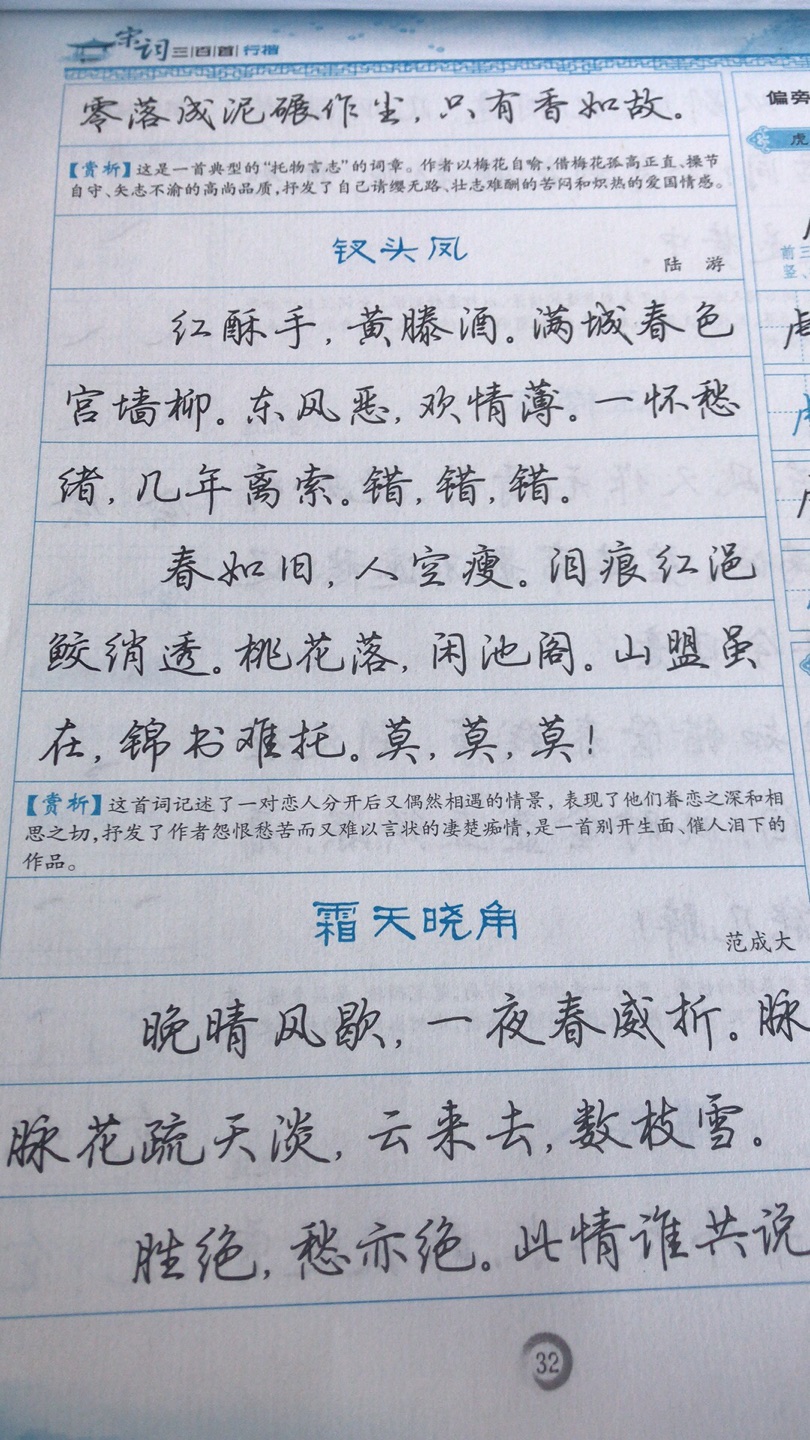 宋词三百首 行楷
零落成泥碾作尘，只有香如故。
【赏析】这是一首典型的“托物言志”的词章。作者以梅花自喻，借梅花孤高正直、操节
自守、矢志不渝的高尚品质，抒发了自己请缨无路、壮志难酬的苦闷和炽热的爱国情感。
钗头凤
陆 游
红酥手，黄滕酒。满城春色
宫墙柳。东风恶，欢情薄。一怀愁
绪，几年离索。错，错，错。
春如旧，人空瘦。泪痕红浥
鲛绡透。桃花落，闲池阁。山盟虽
在，锦书难托。莫，莫，莫！
【赏析】这首词记述了一对恋人分开后又偶然相遇的情景，表现了他们眷恋之深和相
思之切，抒发了作者怨恨愁苦而又难以言状的凄楚痴情，是一首别开生面、催人泪下的
作品。
霜天晓角
范成大
晚晴风歇，一夜春威折。脉
脉花疏天淡，云来去，数枝雪。
胜绝，愁亦绝。此情谁共说
32
偏旁
虎
前三
竖、